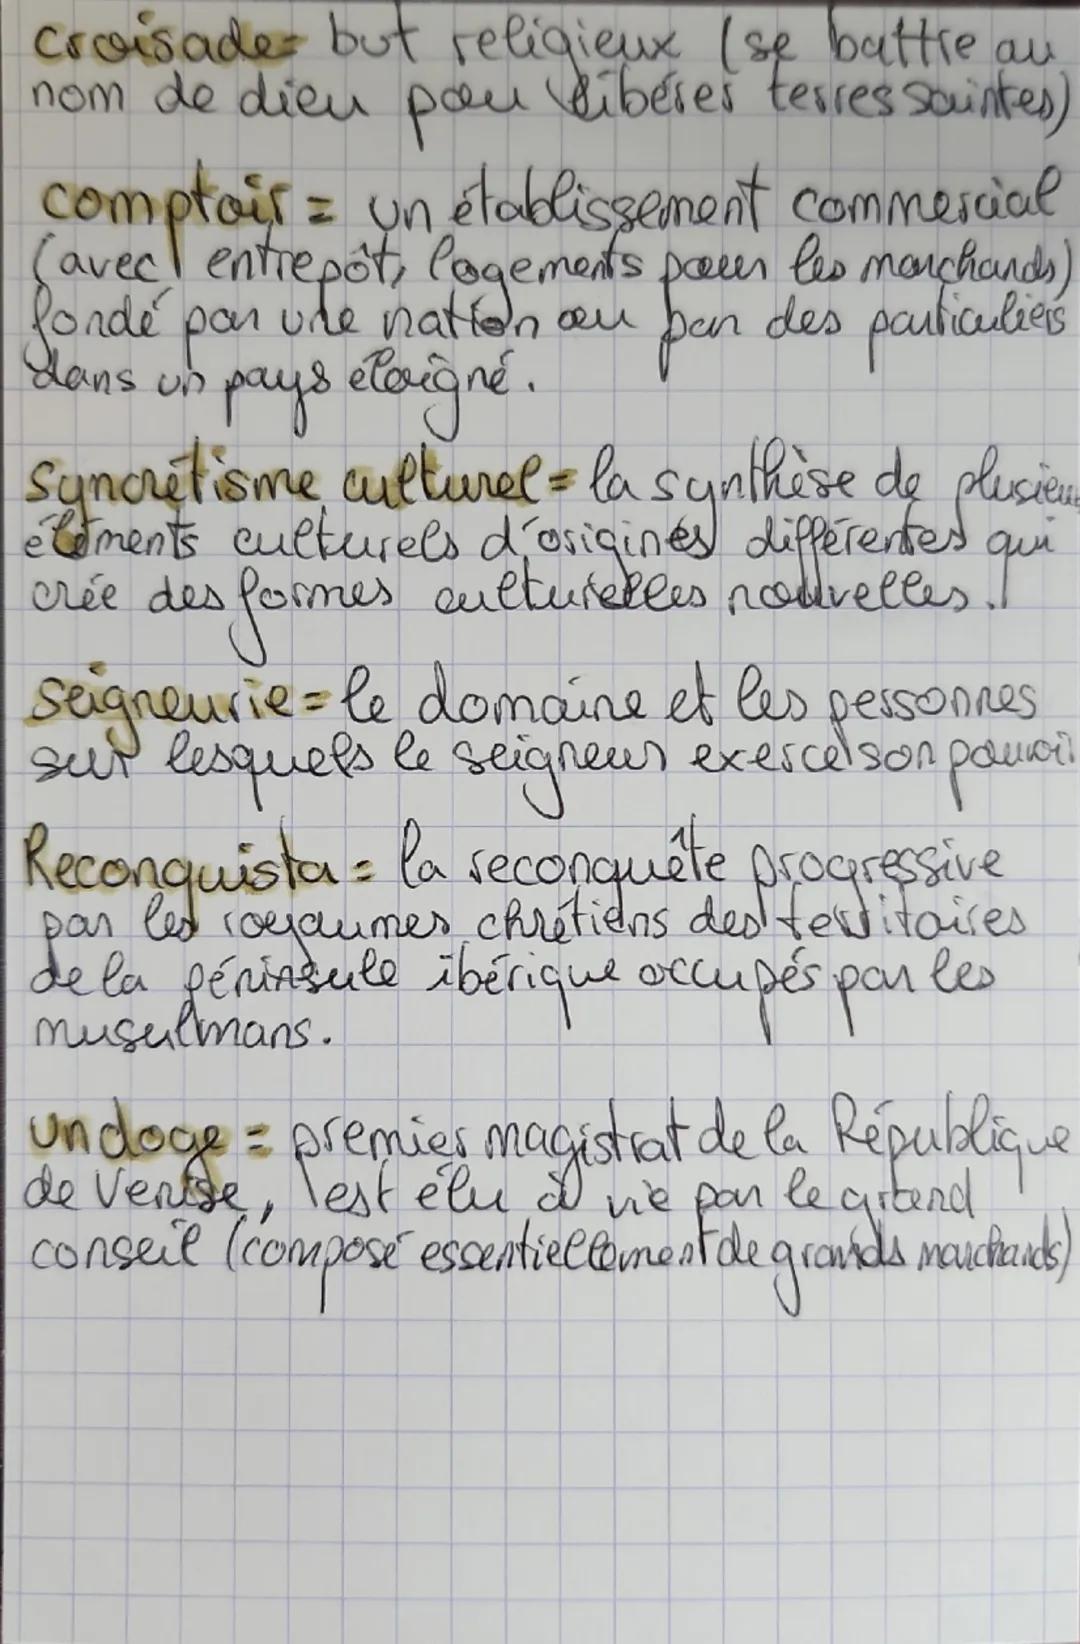 croisade = but religieux (se battre au
nom de dieu pour libérer terres saintes)
comptoir = un établissement commercial
(avec entrepôt, logements pour les marchands)
fondé par une nation ou par des particuliers
dans un pays éloigné.
Syncrétisme culturel = la synthèse de plusieu
éléments culturels d'origines différentes qui
crée des formes culturelles nouvelles.
Seigneurie = le domaine et les personnes
sur lesquels le seigneur exerce son pouvoir
Reconquista = la reconquête progressive
par les royaumes chrétiens des territoires
de la péninsule ibérique occupés par les
musulmans.
un doge = premier magistrat de la République
de Venise, est élu à vie par le grand
conseil (composé essentiellement de grands marchands)